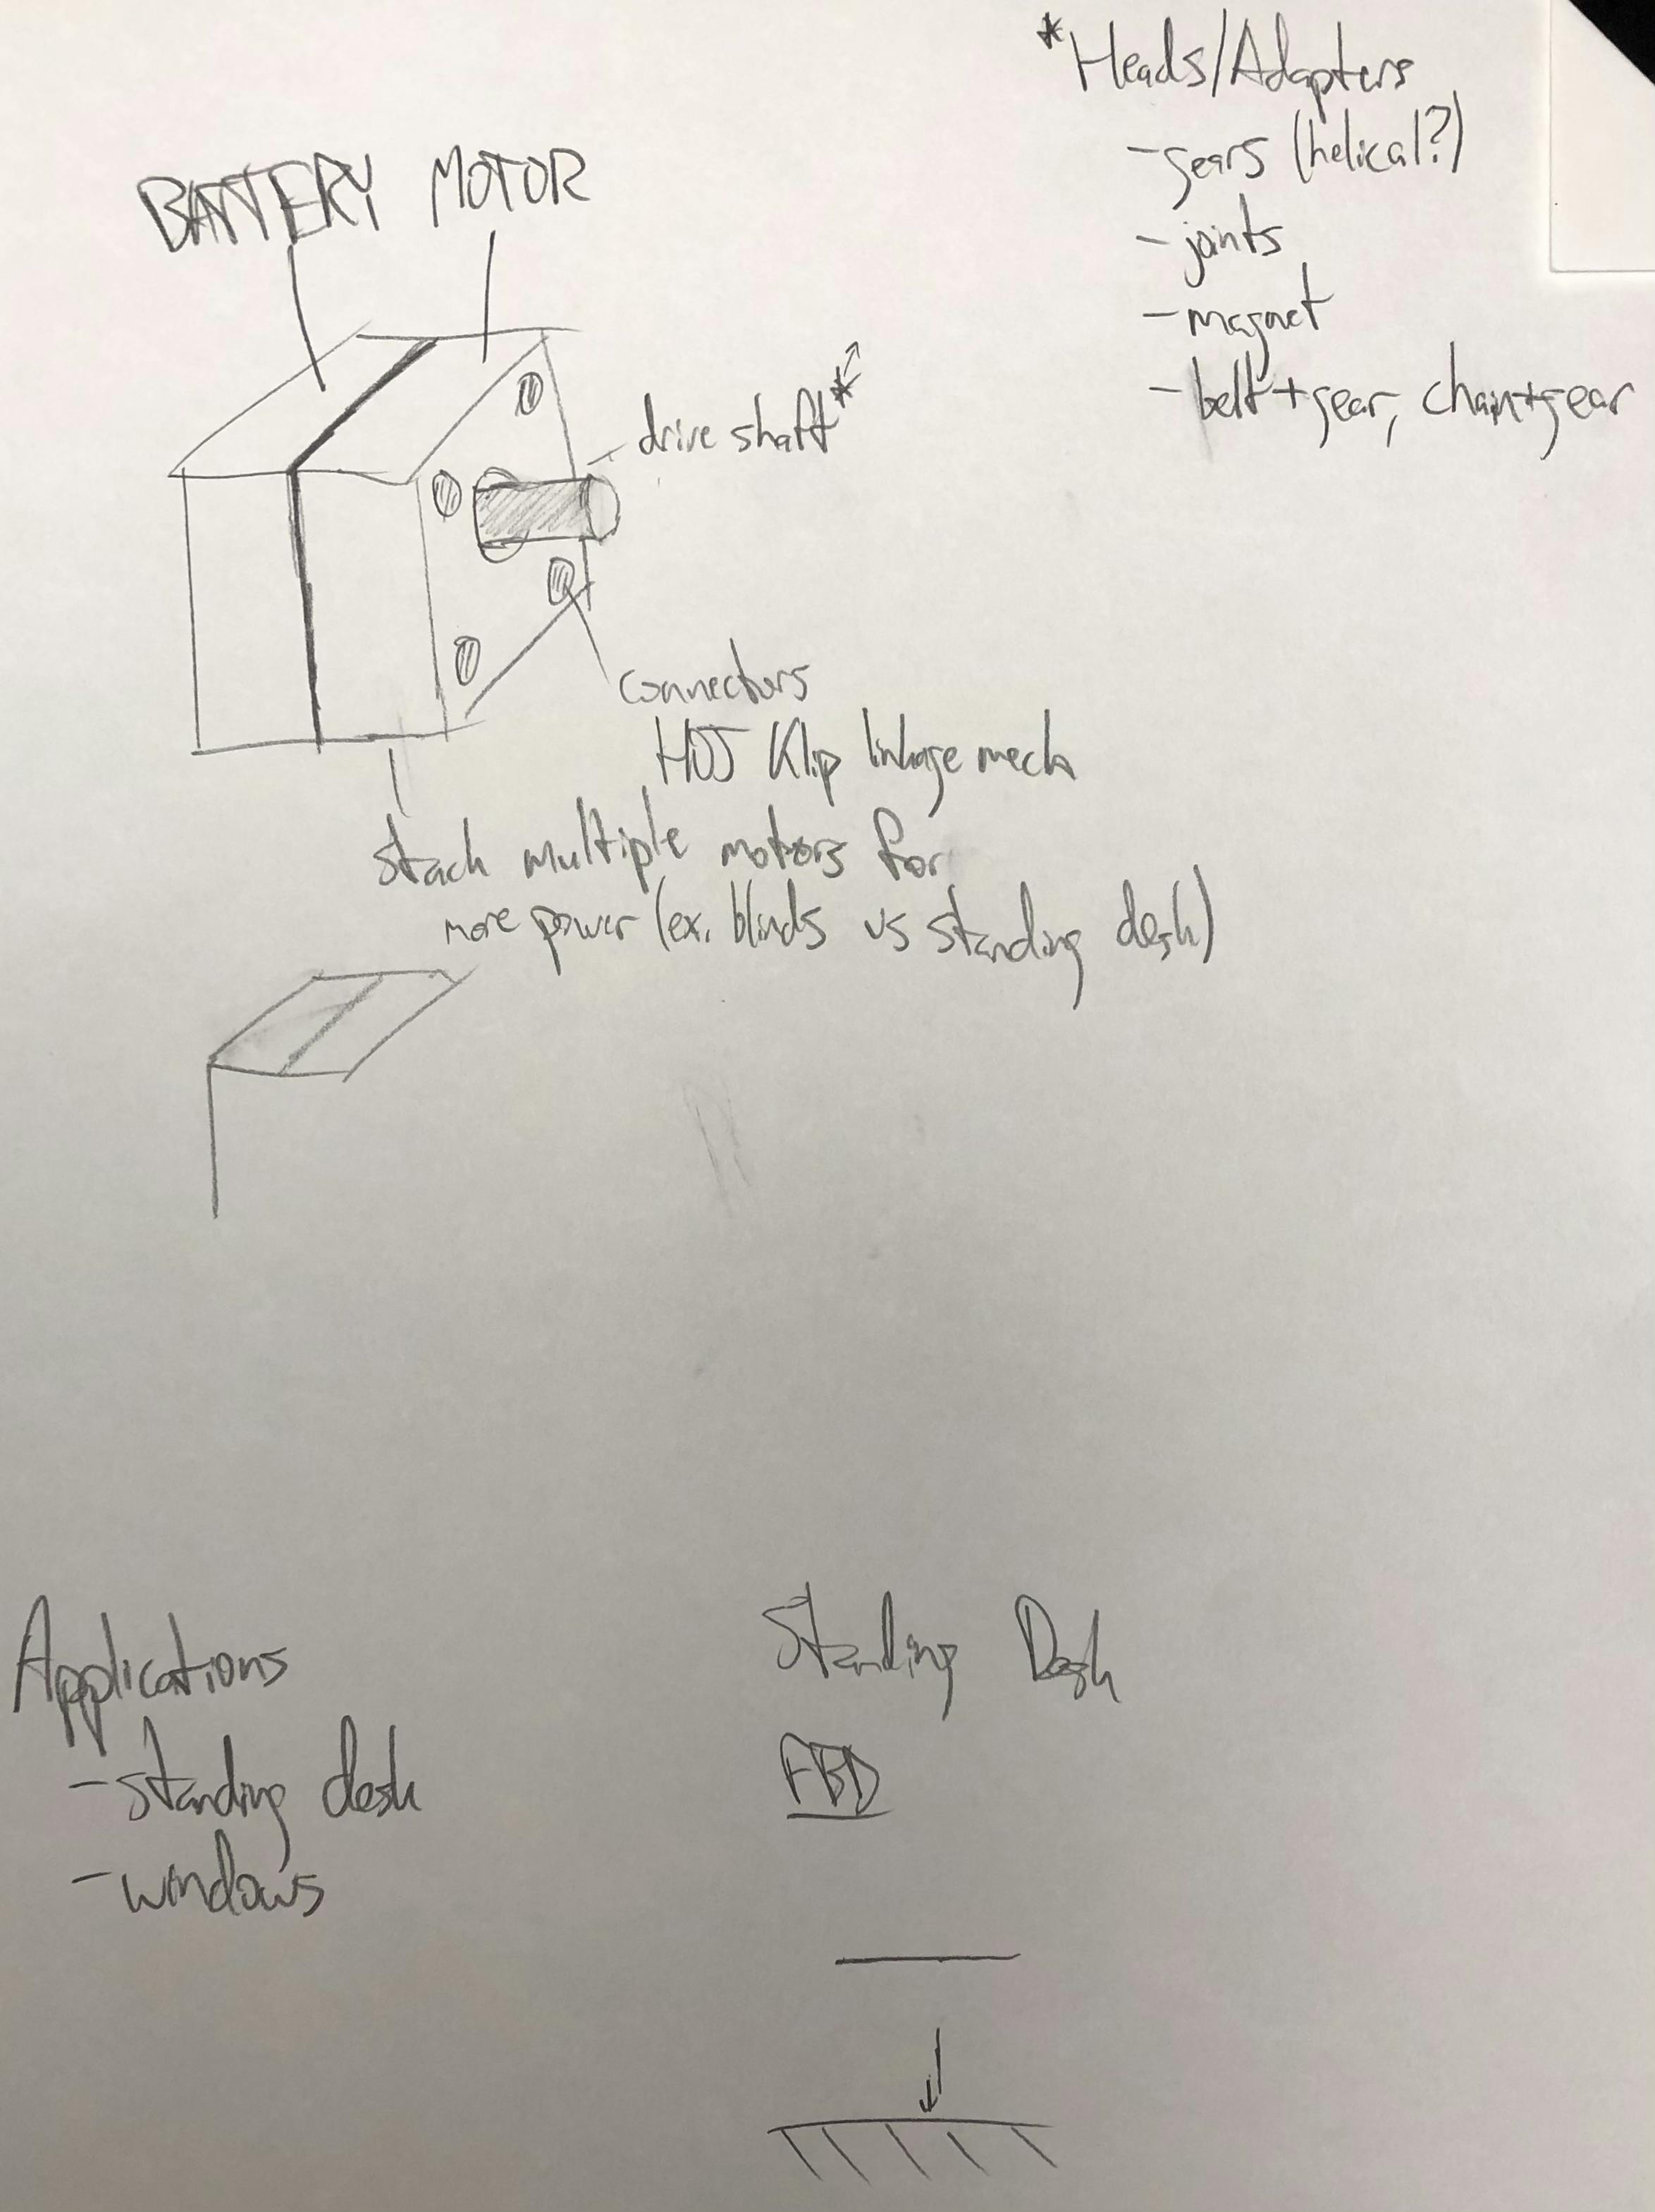 BATTERY MOTOR
drive shaft*
connectors
Klip linkage mech
stack multiple motors for
more power (ex. blinds vs standing desk)
*Heads/Adapters
- gears (helical?)
- joints
- magnet
- belt + gear, chain+gear
Applications
- standing desk
- windows
Standing Desk
FBD